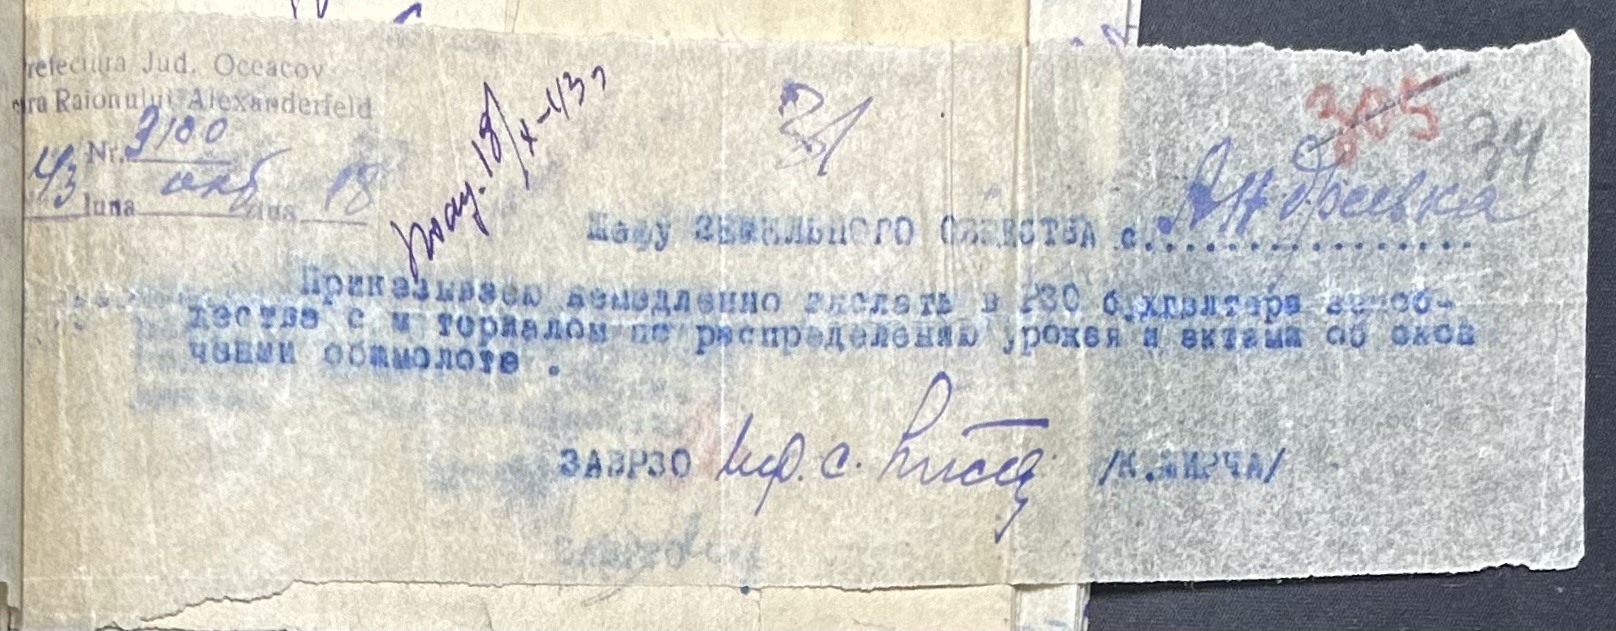 refectura Jud. Oceacov
ra Raionului Alexanderfeld
Nr. 3180
43 luna окт ziua 18
Получ. 18/X-43 г
31
305
34
Шефу ЗЕМЕЛЬНОГО ОБЩЕСТВА с. Андреевка
Приказываю немедленно выслать в РЗО бухгалтера земоб-
щества с материалом по распределению урожая и актами об окон
чании обммолота .
ЗАВРЗО /К.МИРЧА/
ЗАВРЗО